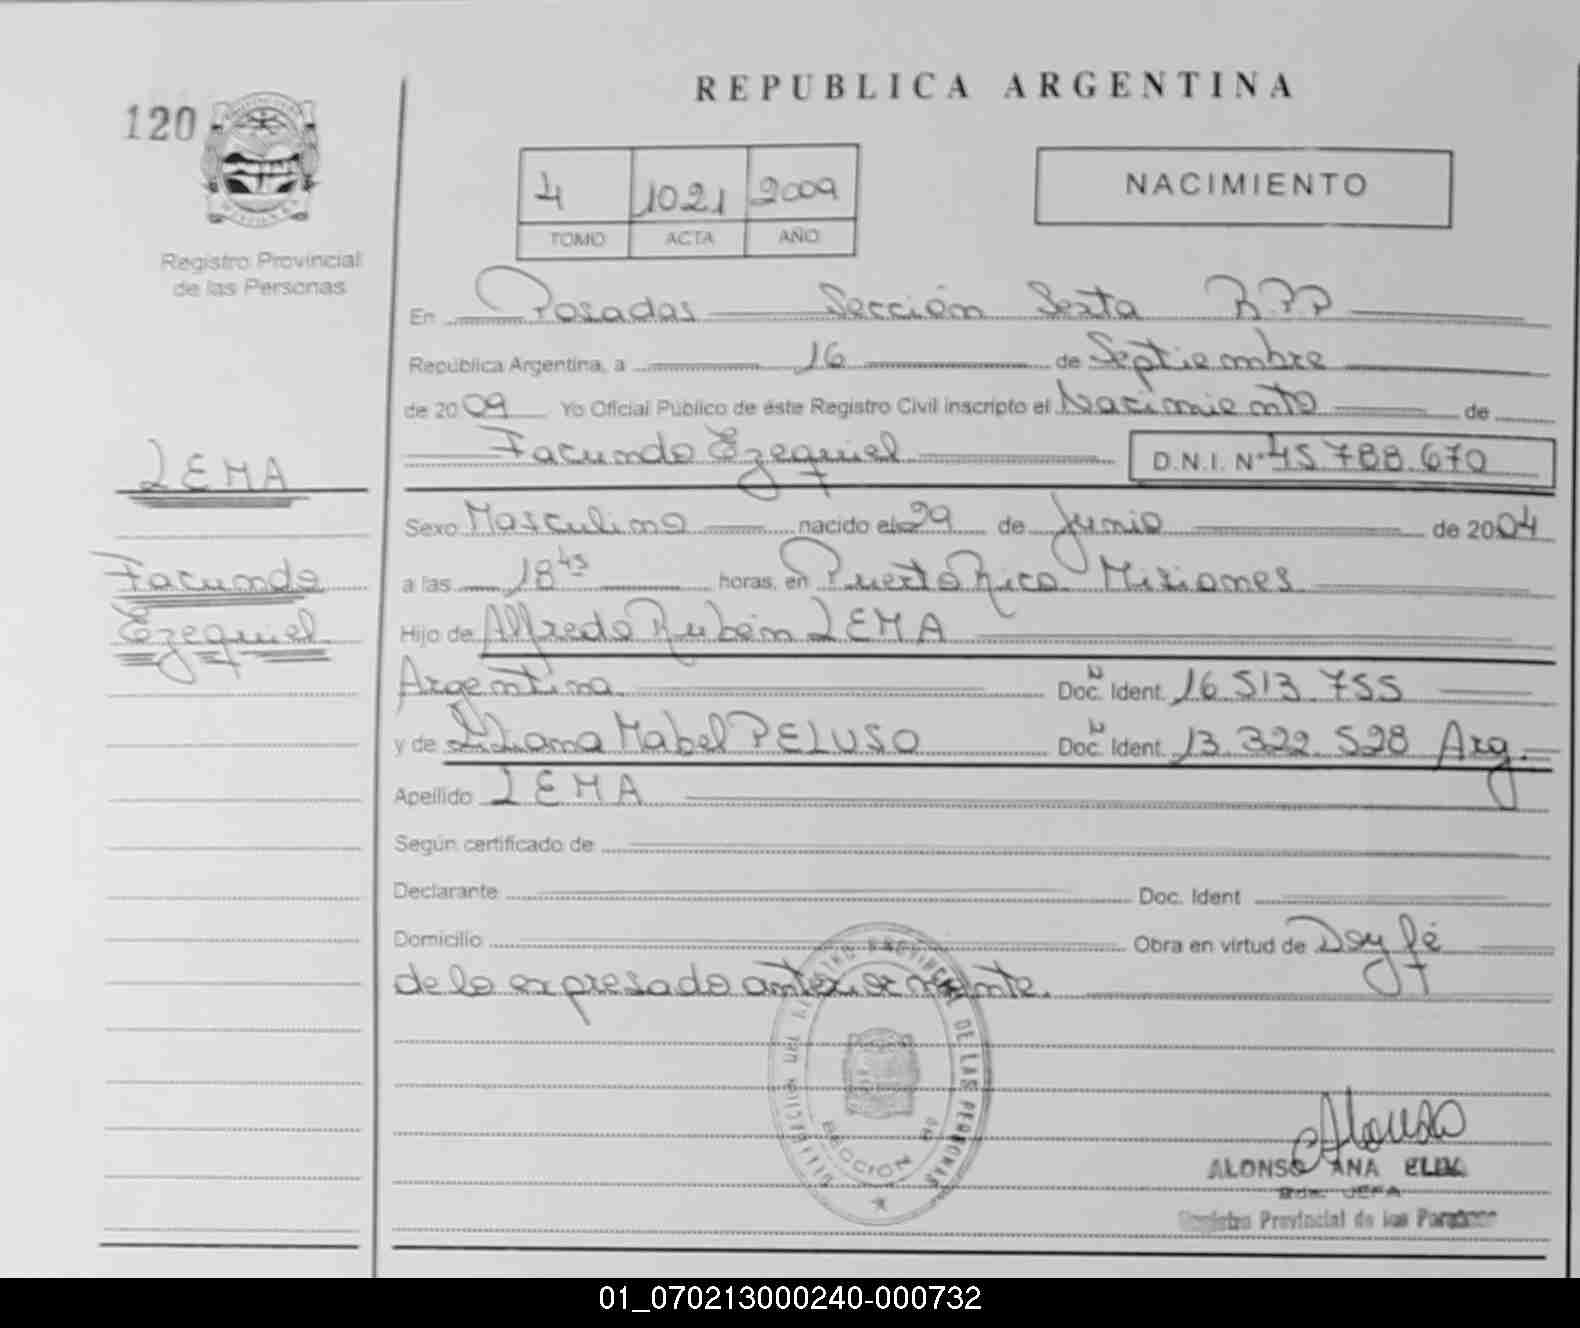 REPUBLICA ARGENTINA
120
Registro Provincial
de las Personas
4 1021 2009
TOMO ACTA AÑO
NACIMIENTO
En Posadas Sección Sexta RPP
República Argentina, a 16 de Septiembre
de 2009 Yo Oficial Público de éste Registro Civil inscripto el Nacimiento de
Facundo Ezequiel D.N.I. Nº 45.788.670
LEMA
Facundo
Ezequiel
Sexo Masculino nacido el 29 de Junio de 2004
a las 18 45 horas, en Puerto Rico Misiones
Hijo de Alfredo Rubén LEMA
Argentina Doc. Ident. 16.513.755
y de Liliana Mabel PELUSO Doc. Ident. 13.322.528 Arg.
Apellido LEMA
Según certificado de
Declarante Doc. Ident
Domicilio Obra en virtud de Doy fé
de lo expresado anteriormente.
PROVINCIAL DE LAS PERSONAS
SECCION
Alonso
ALONSO ANA
JEFA
Registro Provincial de las Personas
01_070213000240-000732